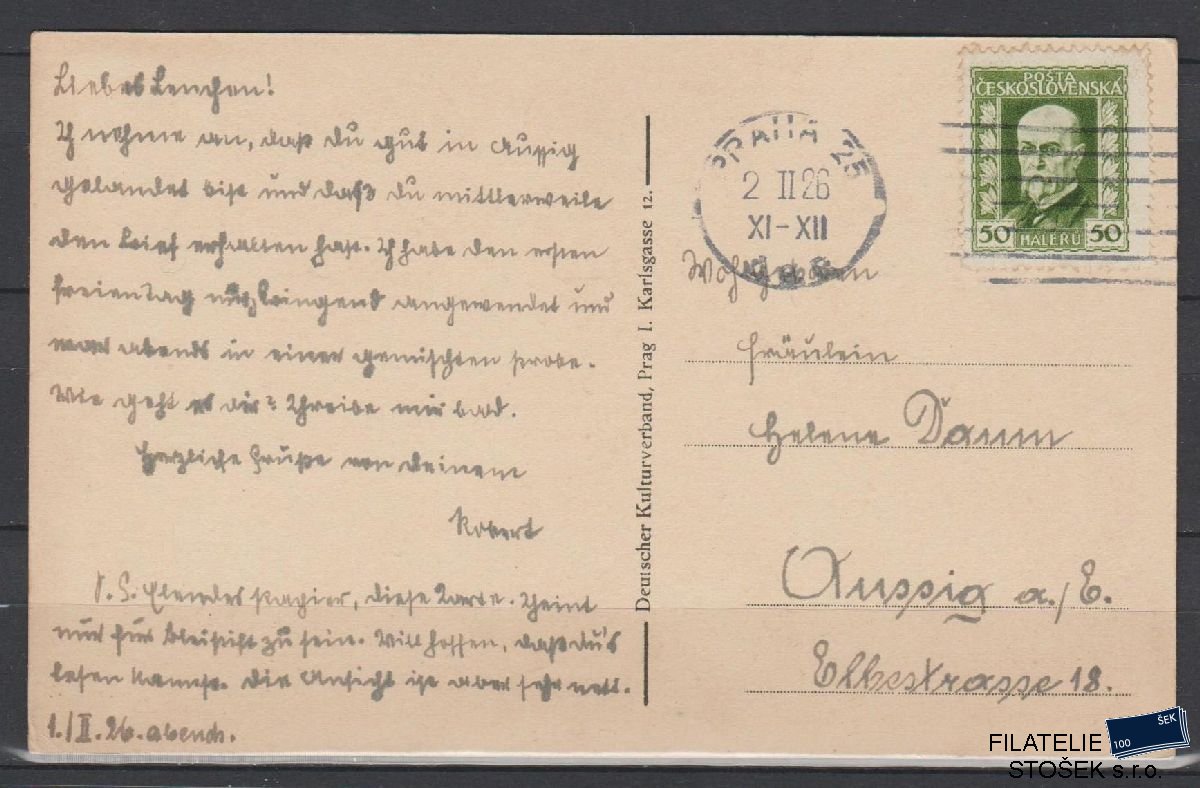 Liebes Lenchen!
Ich nehme an, daß du gut in Aussig
gelandet bist und daß du mittlerweile
den Brief erhalten hast. Ich habe den ersten
freien Tag angewendet und
war abends in einer gemischten Probe.
Wie geht es dir? Schreibe mir bald.
Herzliche Grüße von deinem
Robert
P. S. Elendes Papier, diese Karte. Scheint
nur für Bleistift zu sein. Will hoffen, daß du's
lesen kannst. Die Ansicht ist aber sehr nett.
1./II. 26. abends.
Deutscher Kulturverband, Prag I. Karlsgasse 12.
PRAHA 25
2 II 26
XI-XII
POŠTA
ČESKOSLOVENSKÁ
50 HALÉŘŮ 50
Wohlgeboren
Fräulein
Helene Damm
Aussig a./E.
Elbestrasse 18.
ŠEK
100
FILATELIE
STOŠEK s.r.o.